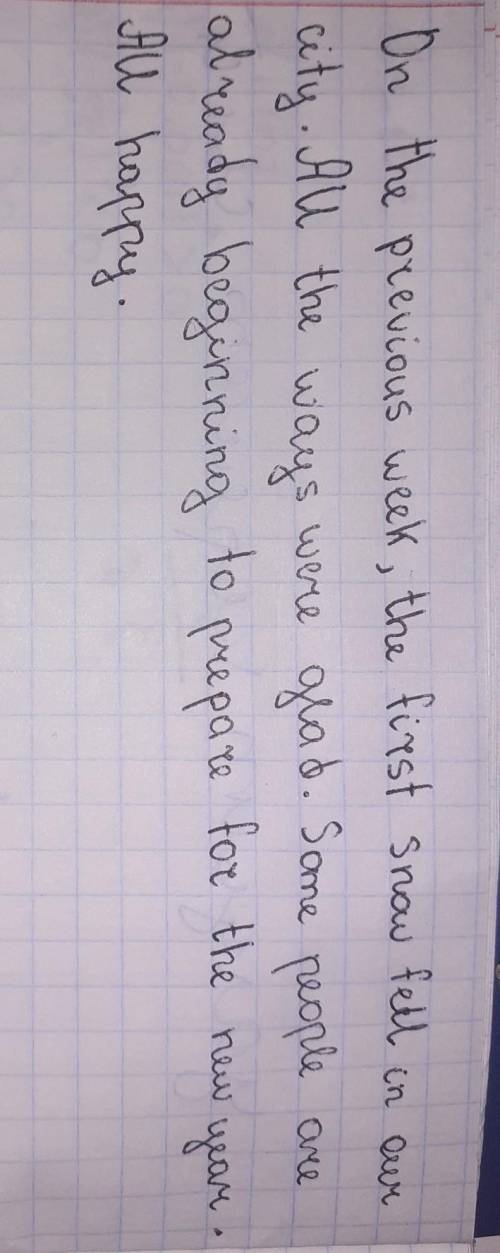 On the previous week, the first snow fell in our
city. All the ways were glad. Some people are
already beginning to prepare for the new year.
All happy.